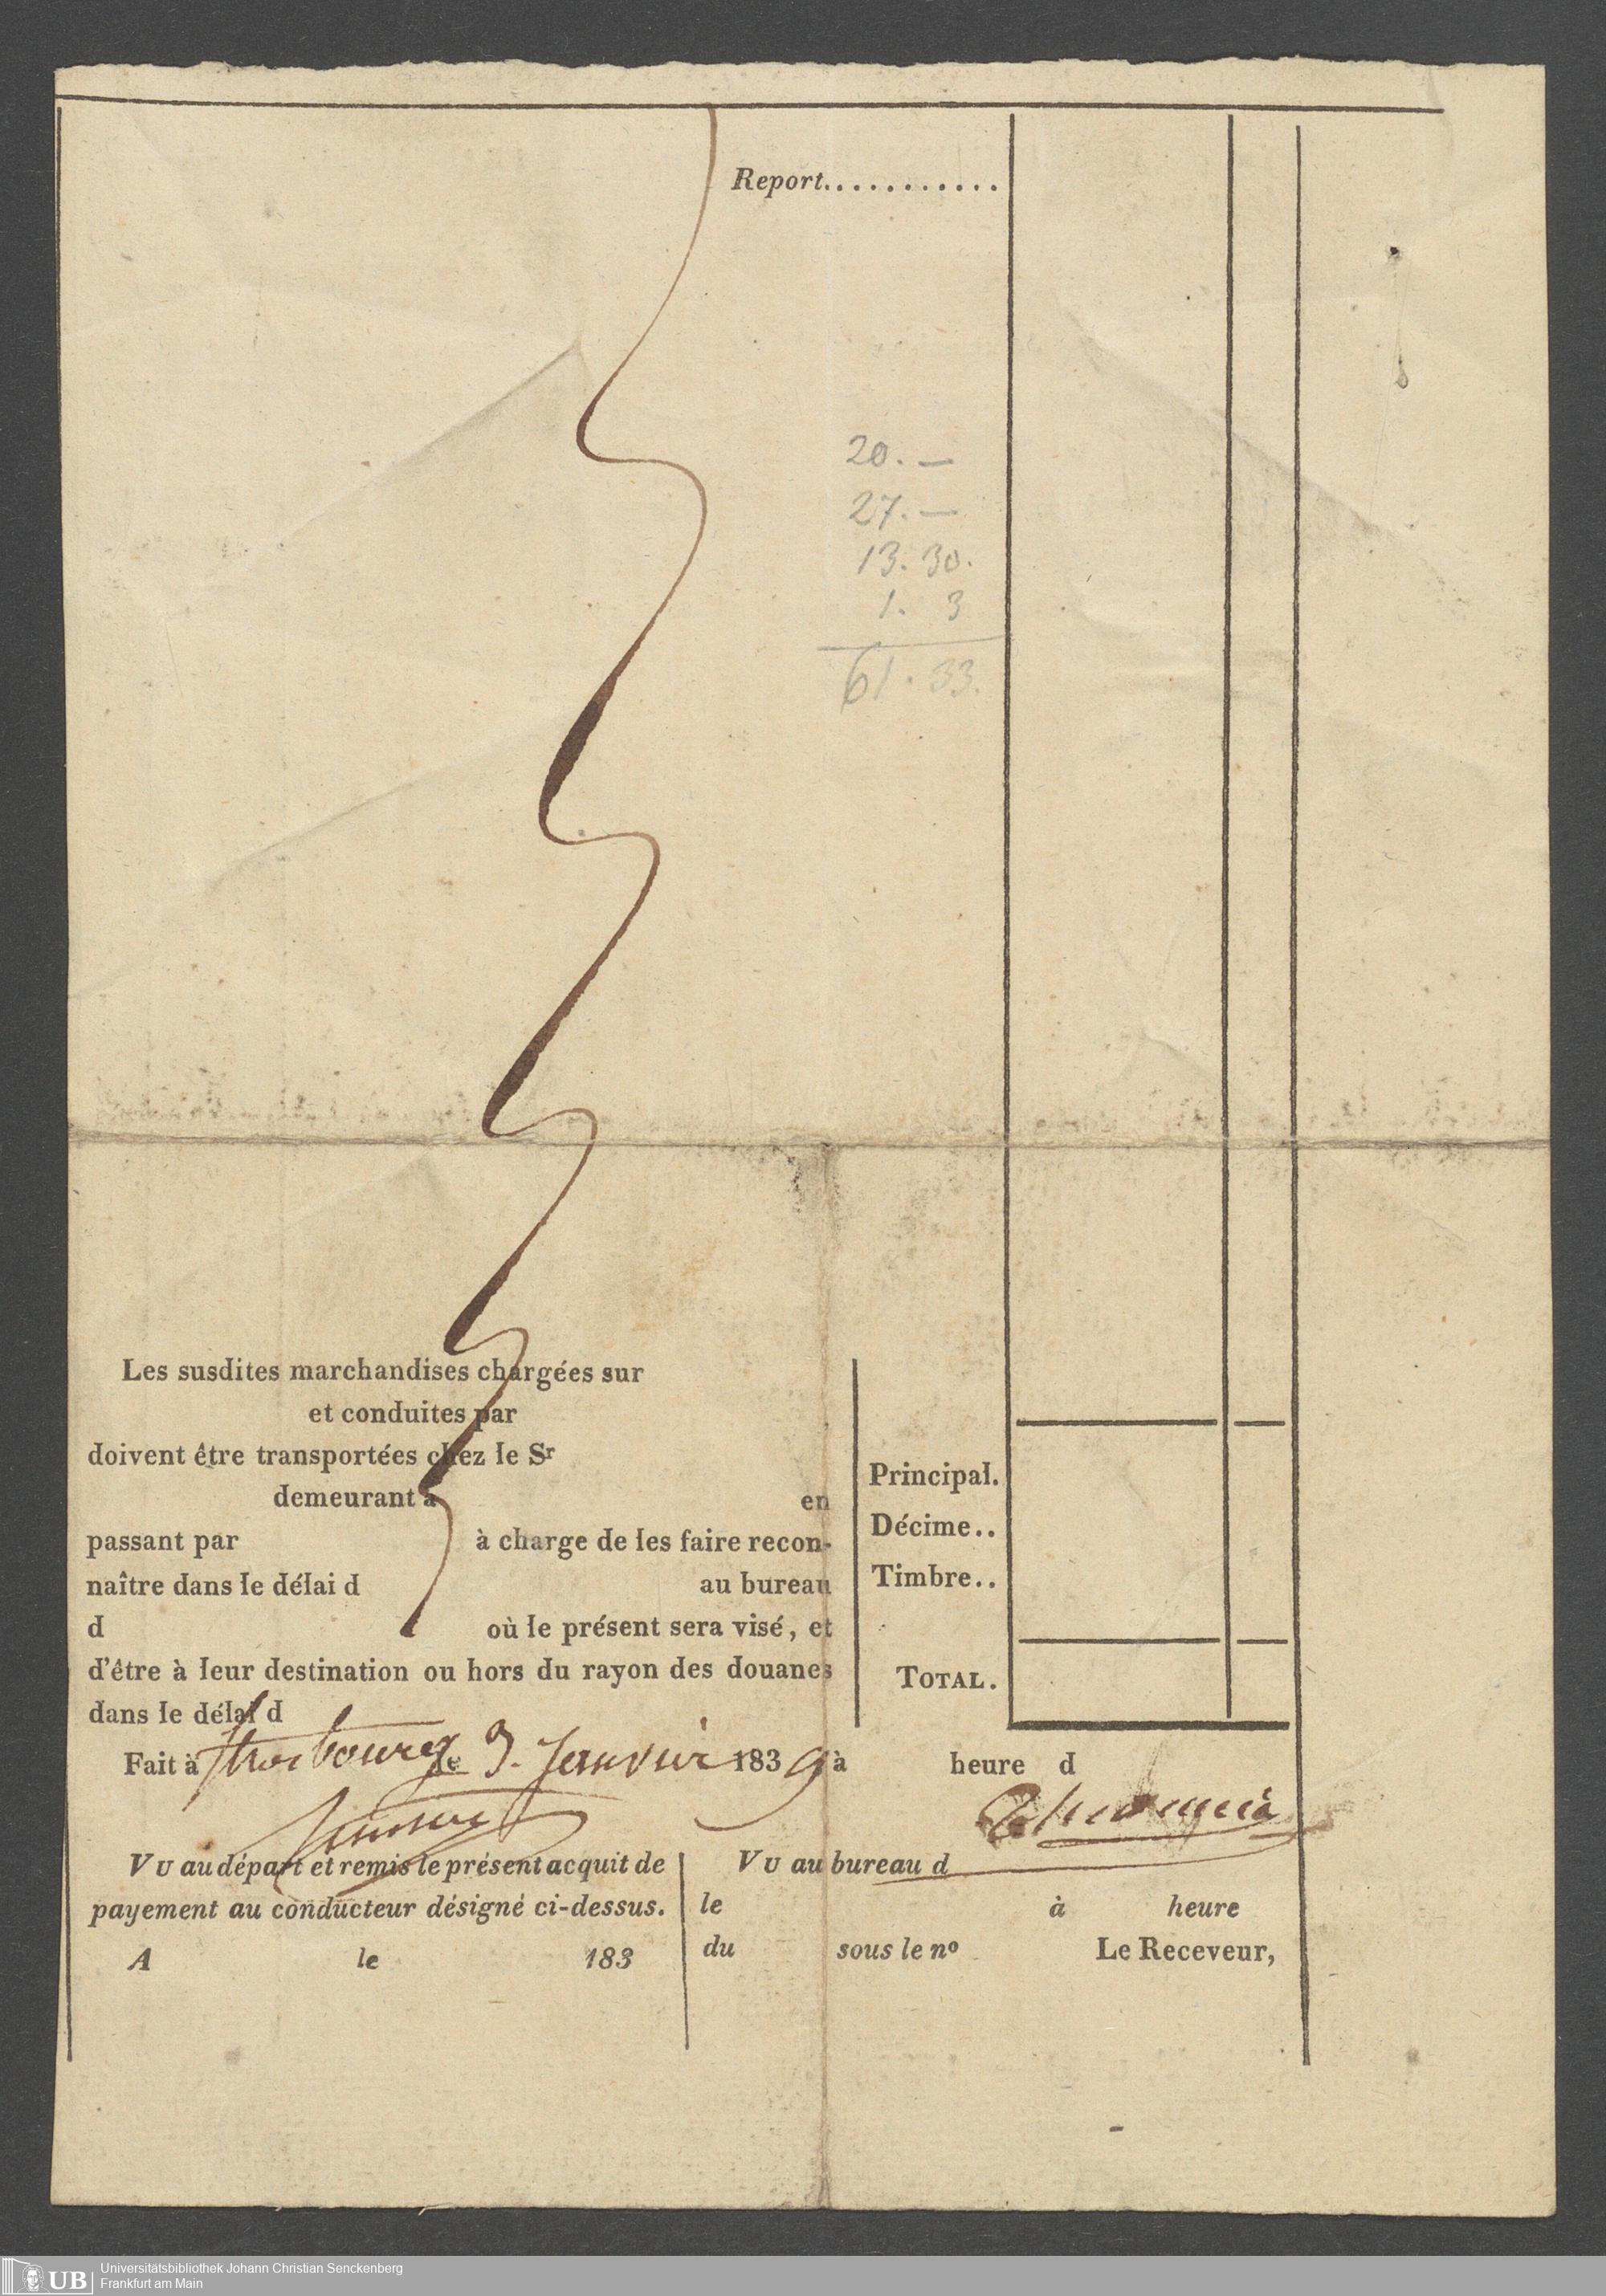 Report............
20. —
27. —
13. 30.
1. 3
61. 33.
Les susdites marchandises chargées sur
et conduites par
doivent être transportées chez le Sr
demeurant à en
passant par à charge de les faire recon-
naître dans le délai d au bureau
d où le présent sera visé, et
d'être à leur destination ou hors du rayon des douanes
dans le délai d
Principal.
Décime..
Timbre..
TOTAL.
Fait à Strasbourg le 3. Janvier 1839 à heure d
VU au départ et remis le présent acquit de
payement au conducteur désigné ci-dessus.
A le 183
VU au bureau d
le à heure
du sous le no Le Receveur,
UB Universitätsbibliothek Johann Christian Senckenberg
Frankfurt am Main